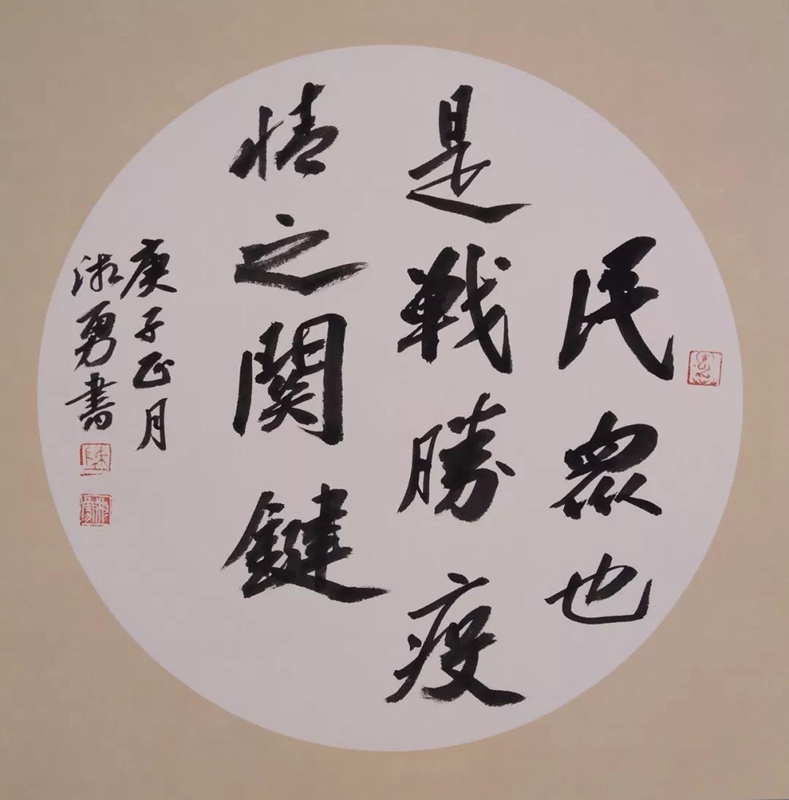 民衆也
是戰勝疫
情之関鍵
庚子正月
淑勇書